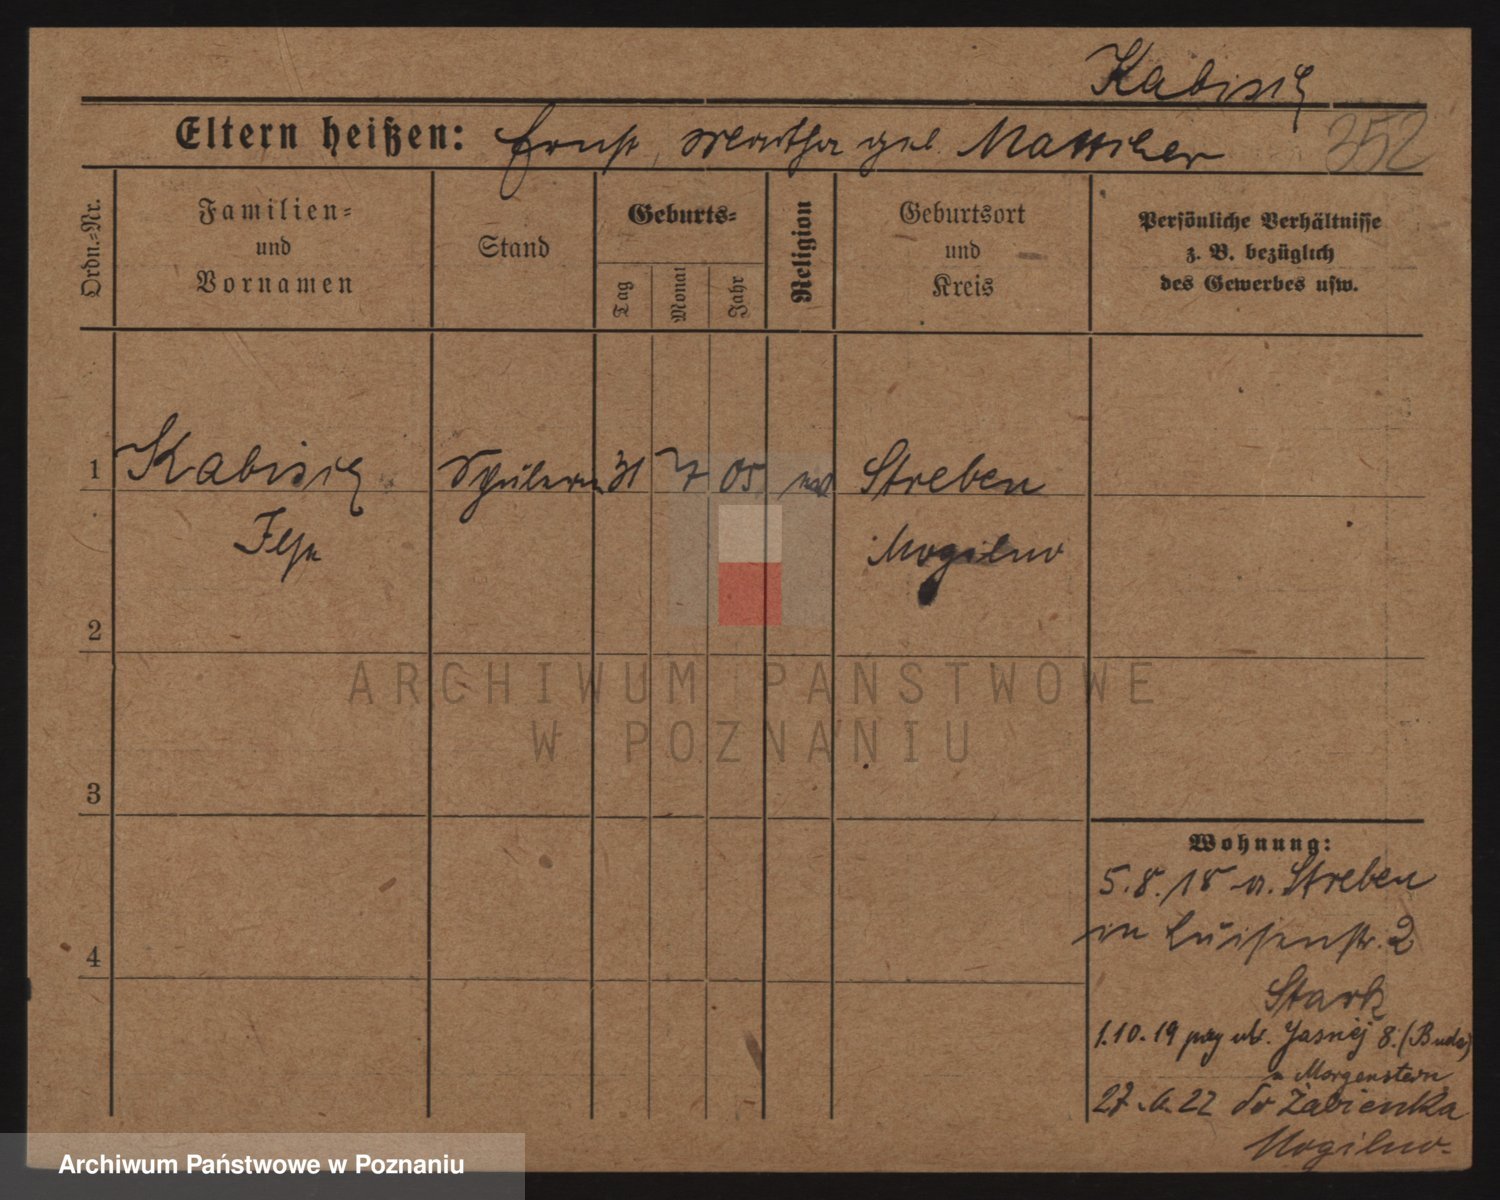 Kabisig
352
Eltern heißen: Ernst, Martha geb.
Ordn.=Nr.
Familien=
und
Vornamen
Stand
Geburts=
Tag
Monat
Jahr
Religion
Geburtsort
und
Kreis
Persönliche Verhältnisse
z. B. bezüglich
des Gewerbes usw.
1 Kabisig Schülerin 31 7 05 Streben
Ilse Mogilno
2
ARCHIWUM PAŃSTWOWE
W POZNANIU
3
4
Wohnung:
5.8.18 v. Streben
in Luisenstr. 2
Stark
1.10.19 przy ul. Jasnej 8.
u Morgenstern
27.6.22 do Żabienka
Mogilno.
Archiwum Państwowe w Poznaniu